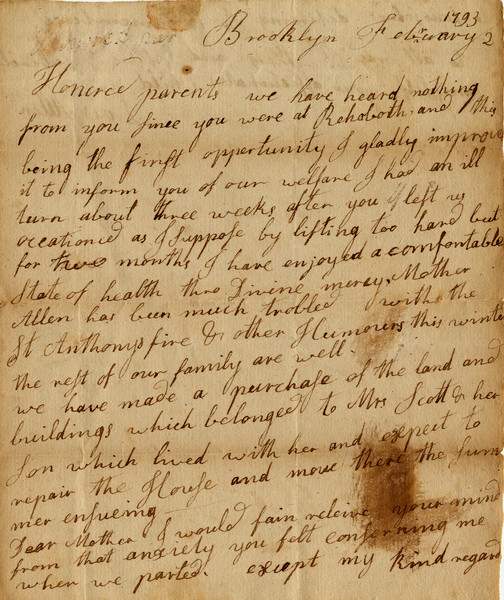 1793
Brooklyn Febrwary 2
Honered parents we have heard nothing
from you since you were at Rehoboth and this
being the first opportunity I gladly improve
it to inform you of our welfare I had an ill
turn about three weeks after you left us
occationed as I suppose by lifting too hard but
for two months I have enjoyed a comfortable
State of health thro Divine mercy. Mother
Allen has been much trobled with the
St Anthonys fire & other Humours this winter
the rest of our family are well.
we have made a purchase of the land and
buildings which belonged to Mrs Scott & her
Son which lived with her and expect to
repair the House and move there the Sum
mer ensueing
Dear Mother I would fain releive your mind
from that anxiety you felt conserning me
when we parted. except my kind regard